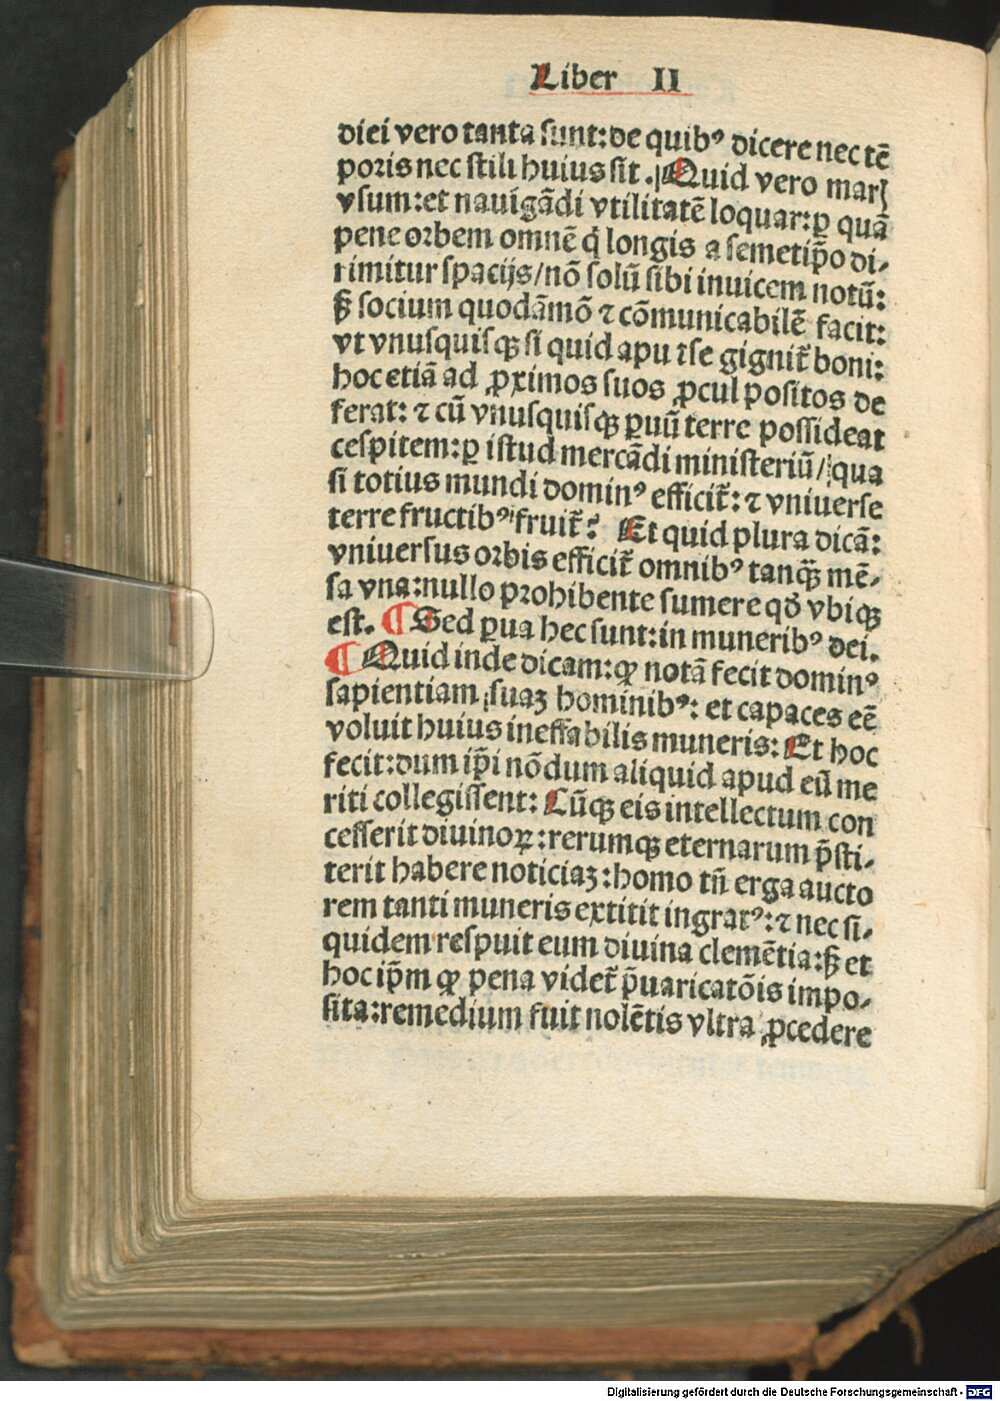 Liber II
diei vero tanta sunt:de quibꝰ dicere nec tẽ
poris nec stili huius sit . Quid vero marꝭ
vsum:et nauigãdi vtilitatẽ loquar:ꝑ quã
pene orbem omnẽ q̇ longis a semetip̃o di⸗
rimitur spacijs/nõ solũ sibi inuicem notũ:
ẞ socium quodãmõ ⁊ cõmunicabilẽ facit:
vt vnusquisqꝫ si quid apu tse gignit̃ boni:
hoc etiã ad ꝓximos suos ꝓcul positos de
ferat: ⁊ cũ vnusquisqꝫ ꝑuũ terre possideat
cespitem:ꝑ istud mercãdi ministeriũ/qua
si totius mundi dominꝰ efficit̃: ⁊ vniuerse
terre fructibꝰ fruit̃? Et quid plura dicã:
vniuersus orbis efficit̃ omnibꝰ tanqꝫ̃ mẽ⸗
sa vna:nullo prohibente sumere qđ vbiqꝫ
est. ¶ Sed ꝑua hec sunt:in muneribꝰ dei.
¶ Quid inde dicam:ꝙ notã fecit dominꝰ
sapientiam suaꝫ hominibꝰ: et capaces eẽ
voluit huius ineffabilis muneris: Et hoc
fecit:dum ip̃i nõdum aliquid apud eũ me
riti collegissent: Cũqꝫ eis intellectum con
cesserit diuinoꝝ:rerumqꝫ eternarum p̃sti⸗
terit habere noticiaꝫ:homo tñ erga aucto
rem tanti muneris extitit ingratꝰ:⁊ nec si⸗
quidem respuit eum diuina clemẽtia:ẞ et
hoc ip̃m ꝙ pena videt̃ p̃uaricatõis impo⸗
sita:remedium fuit nolẽtis vltra ꝓcedere
Digitalisierung gefördert durch die Deutsche Forschungsgemeinschaft - DFG